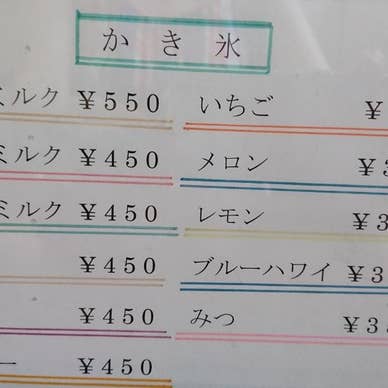 かき氷
ミルク ￥550
ミルク ￥450
ミルク ￥450
￥450
￥450
ー ￥450
いちご ￥
メロン ￥3
レモン ￥3
ブルーハワイ ￥3
みつ ￥3